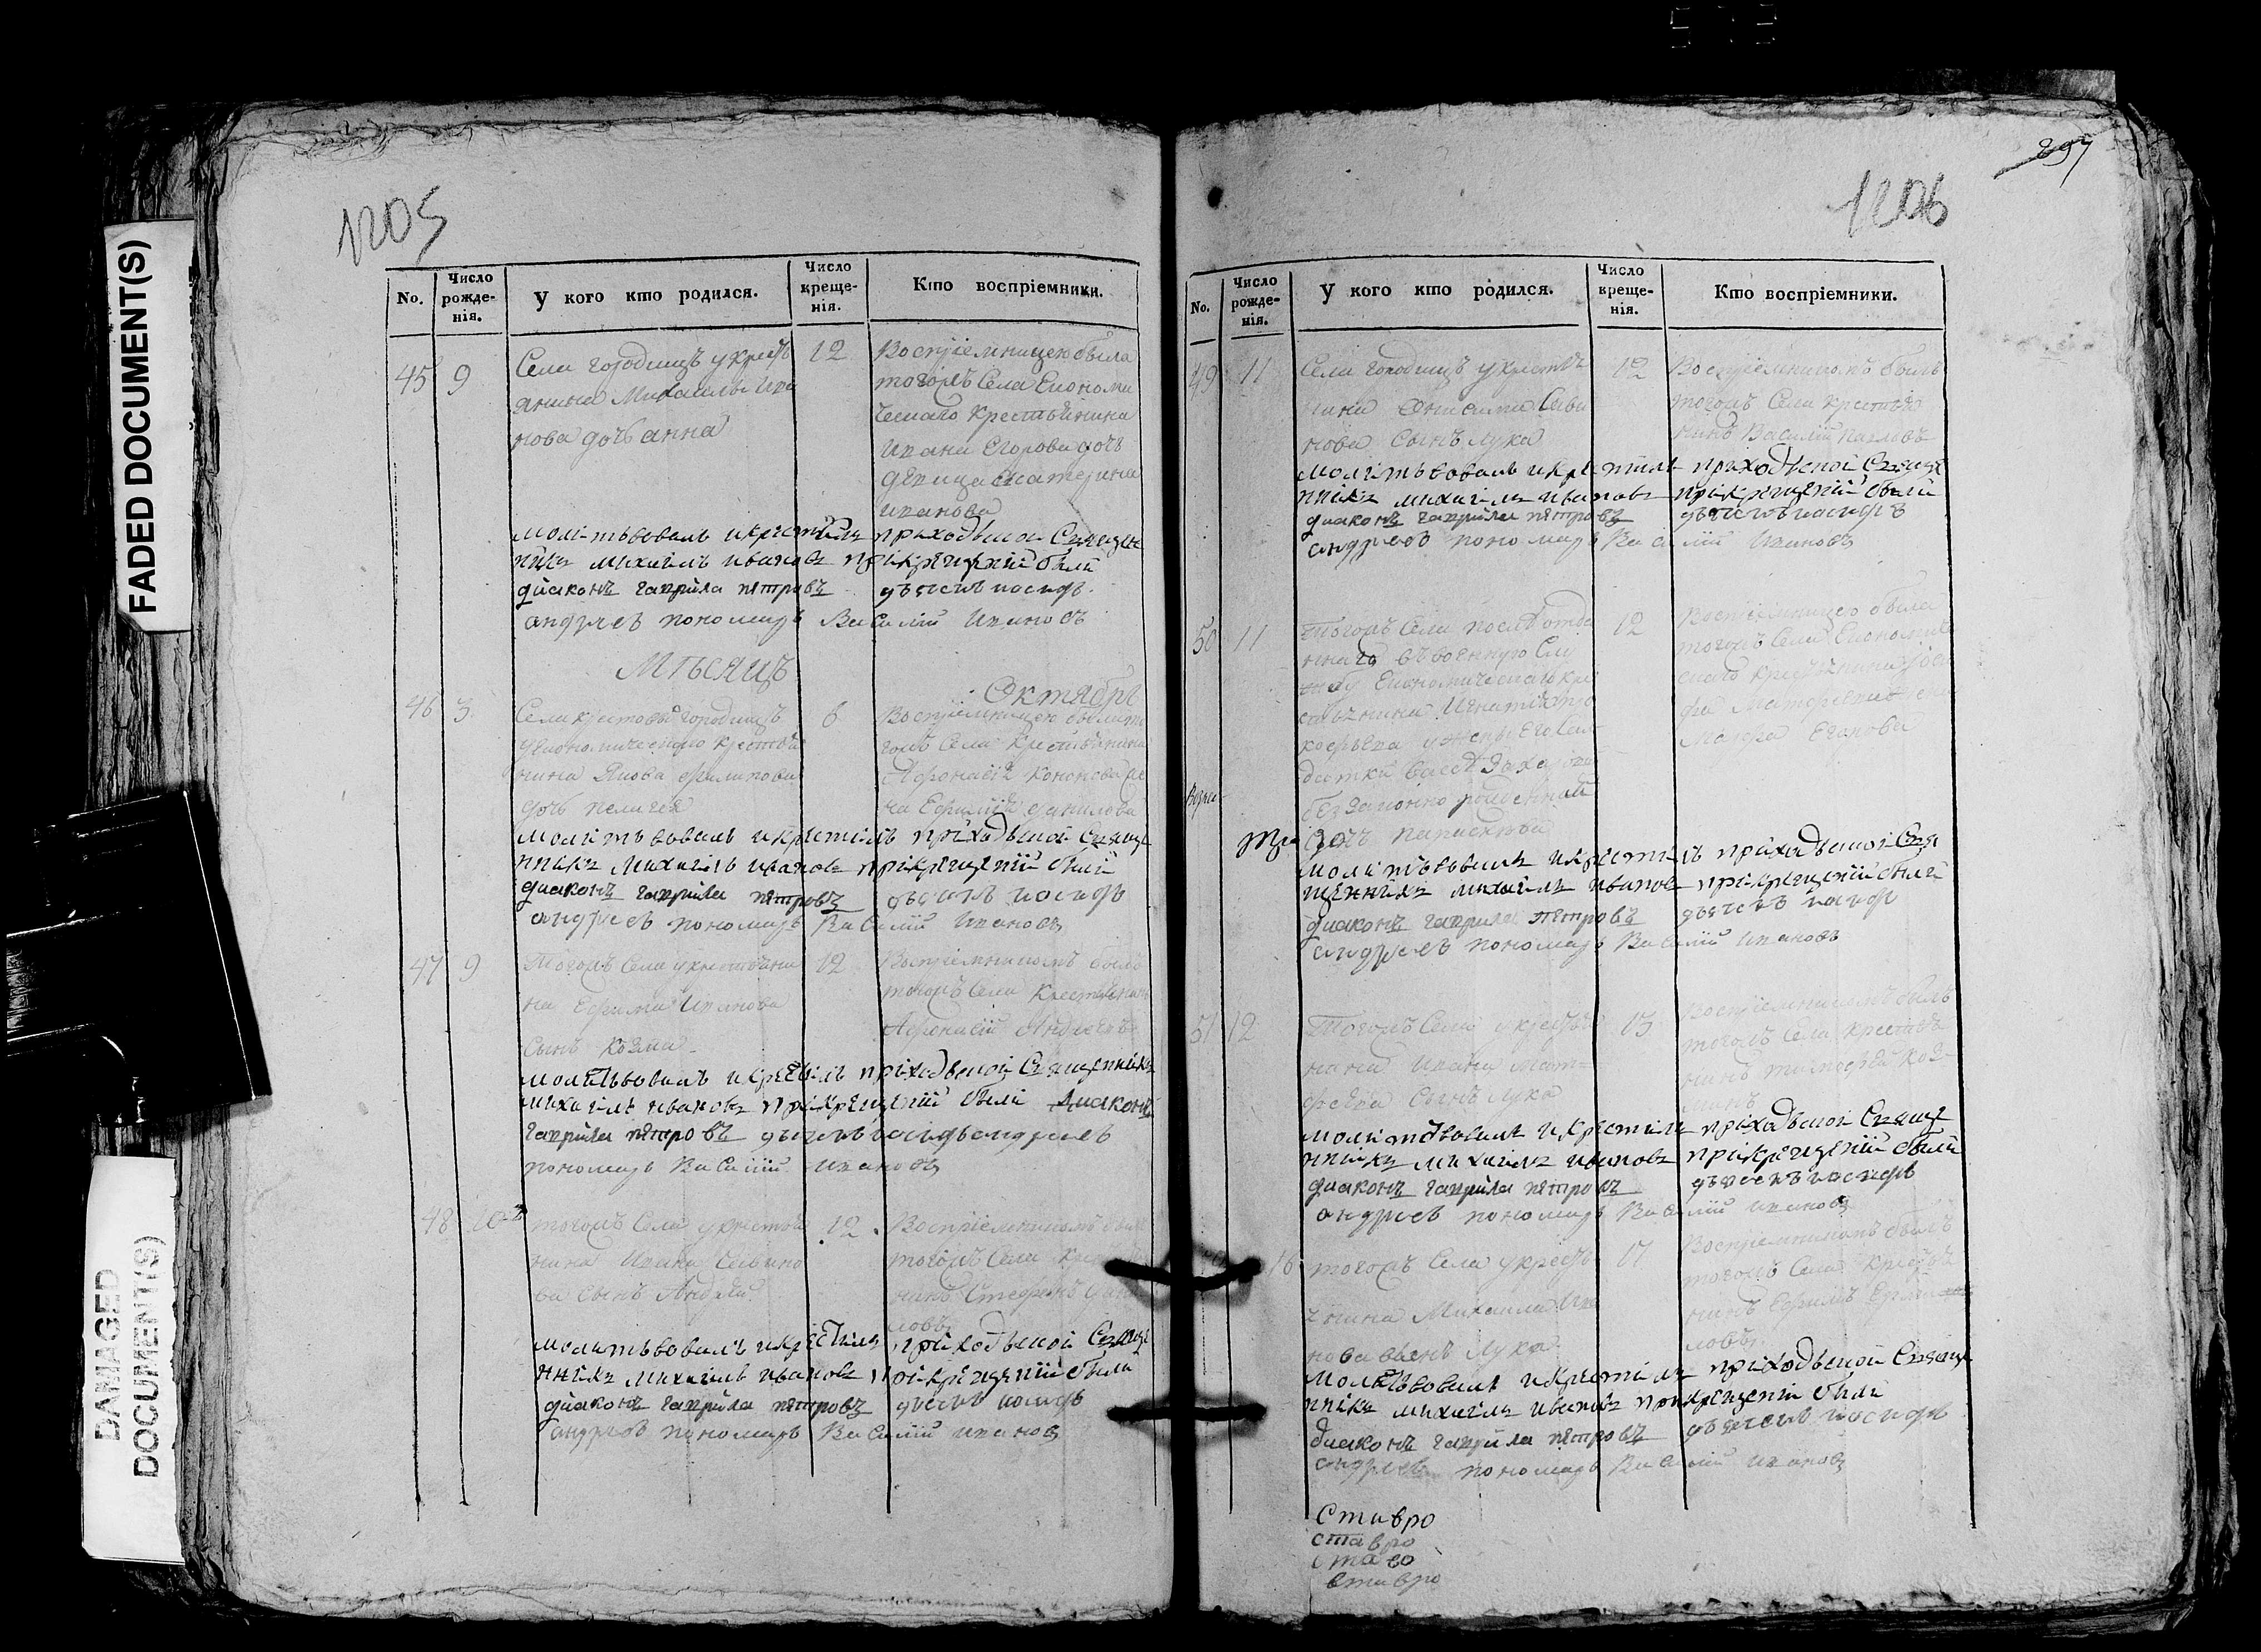 FADED DOCUMENT(S)
DAMAGED DOCUMENT(S)
1205
No.
Число рожденія.
У кого кто родился.
Число крещенія.
Кто воспріемники.
45
9
Села городищъ у крест
янина Михаилы Ива
нова дочь анна
12
Воспріемницею была
тогожъ Села Економи
ческаго крестьянина
Ивана Егорова дочь
девица Екатерина
иванова
молитвовалъ и крестилъ приходской Священ
никъ михаилъ ивановъ при крещеніи были
диаконъ гаврила петровъ дьячекъ иосифъ
андреевъ пономарь Василий Ивановъ
Мѣсяцъ
Октябрь
46
3
6
Села крестовы городищъ
економическаго крестья
нина Якова филипова
дочь пелагея
Воспріемницею была то
гожъ Села крестьянина
Афонасія Кононова
Ефимія данилова
молитвовалъ и крестилъ приходской Священ
никъ Михаилъ ивановъ при крещеніи были
диаконъ гаврила петровъ дьячекъ иосифъ
андреевъ пономарь Василий Ивановъ
47
9
Тогожъ Села у крестьяни
на Ефима Иванова
сынъ козма
12
Воспріемникомъ былъ
тогожъ Села Крестьянинъ
Афонасий Андреевъ
молитвовалъ и крестилъ приходской Священникъ
михаилъ ивановъ при крещеніи были диаконъ
гаврила петровъ дьячекъ иосифъ андреевъ
пономарь Василий ивановъ
48
10
тогожъ Села у крестья
нина Ивана Савино
ва сынъ Андрей
12
Воспріемникомъ былъ
тогожъ Села
нинъ Стефанъ дани
ловъ
молитвовалъ и крестилъ приходской Священ
никъ михаилъ ивановъ при крещеніи были
диаконъ гаврила петровъ дьячекъ иосифъ
андреевъ пономарь Василий ивановъ
1206
297
No.
Число рожденія.
У кого кто родился.
Число крещенія.
Кто воспріемники.
49
11
Села городищъ у крестья
нина Онисима Сави
нова Сынъ лука
12
Воспріемникомъ былъ
тогожъ Села крестья
нинъ Василий павловъ
молитвовалъ и крестилъ приходской Священ
никъ михаилъ ивановъ при крещеніи были
диаконъ гаврила петровъ дьячекъ иосифъ
андреевъ пономарь Василий Ивановъ
50
11
Тогожъ Села после отда
ннаго въ военную Слу
жбу Економическаго кре
стьянина Игнатія про
кофьева у жены Его Сол
датки
безаконно рожденная
дочь параскева
12
Воспріемницею была
тогожъ Села Економиче
скаго крестьянина
Мавра Егорова
молитвовалъ и крестилъ приходской Свя
щенникъ михаилъ ивановъ при крещеніи были
диаконъ гаврила петровъ дьячекъ иосифъ
андреевъ пономарь Василий Ивановъ
51
12
Тогожъ Села у крестья
нина Ивана Мат
феева Сынъ лука
15
Воспріемникомъ былъ
тогожъ Села крестья
нинъ тимофей коз
минъ
молитвовалъ и крестилъ приходской Священ
никъ михаилъ ивановъ при крещеніи были
диаконъ гаврила петровъ дьячекъ иосифъ
андреевъ пономарь Василий ивановъ
16
тогожъ Села у кресть
янина Михаила Ива
нова сынъ Лука
17
Воспріемникомъ былъ
тогожъ Села крестья
нинъ Ефимъ
ловъ
молитвовалъ и крестилъ приходской Священ
никъ михаилъ ивановъ при крещеніи были
диаконъ гаврила петровъ дьячекъ иосифъ
андреевъ пономарь Василий ивановъ
Ставро
ставро
ставро